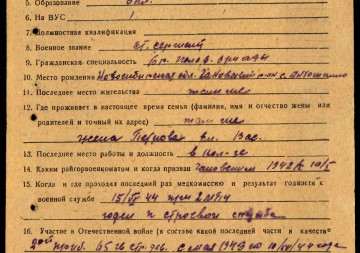 5. Образование 3 кл.
6. На ВУС 1
7. Должностная квалификация
8. Военное звание ст. сержант
9. Гражданская специальность бр. полев. бригады
10. Место рождения Новосибирская обл.
11. Последнее место жительства там же
12. Где проживает в настоящее время семья (фамилия, имя и отчество жены или
родителей и точный их адрес) там же
жена Петрова
13. Последнее место работы и должность в кол-зе
14. Каким райгорвоенкоматом и когда призван 1942 г. 10/5
15. Когда и где проходил последний раз медкомиссию и результат годности к
военной службе 15/ 44 при
годен к строевой службе
16. Участие в Отечественной войне (в составе какой последней части в качестве
65 гв. стр. див. с мая 1943 по 10/ 44 года